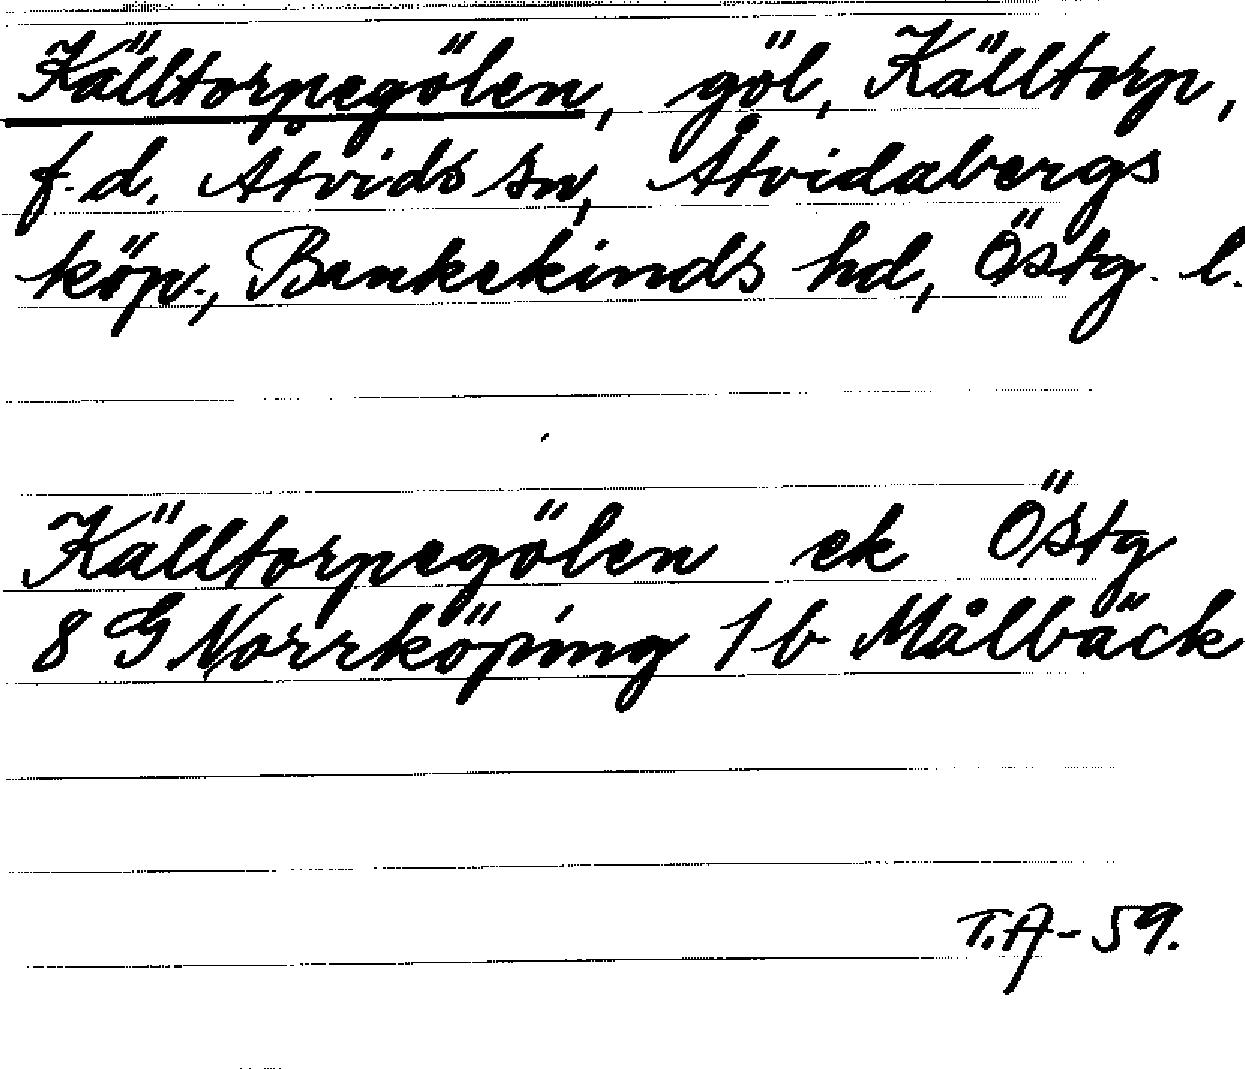 Källtorpegölen, göl, Källtorp,
f.d. Åtvids sn, Åtvidabergs
köp., Bankekinds hd, Östg. l.
Källtorpegölen ek Östg
8 G Norrköping 1 b Målbäck
T.A-59.